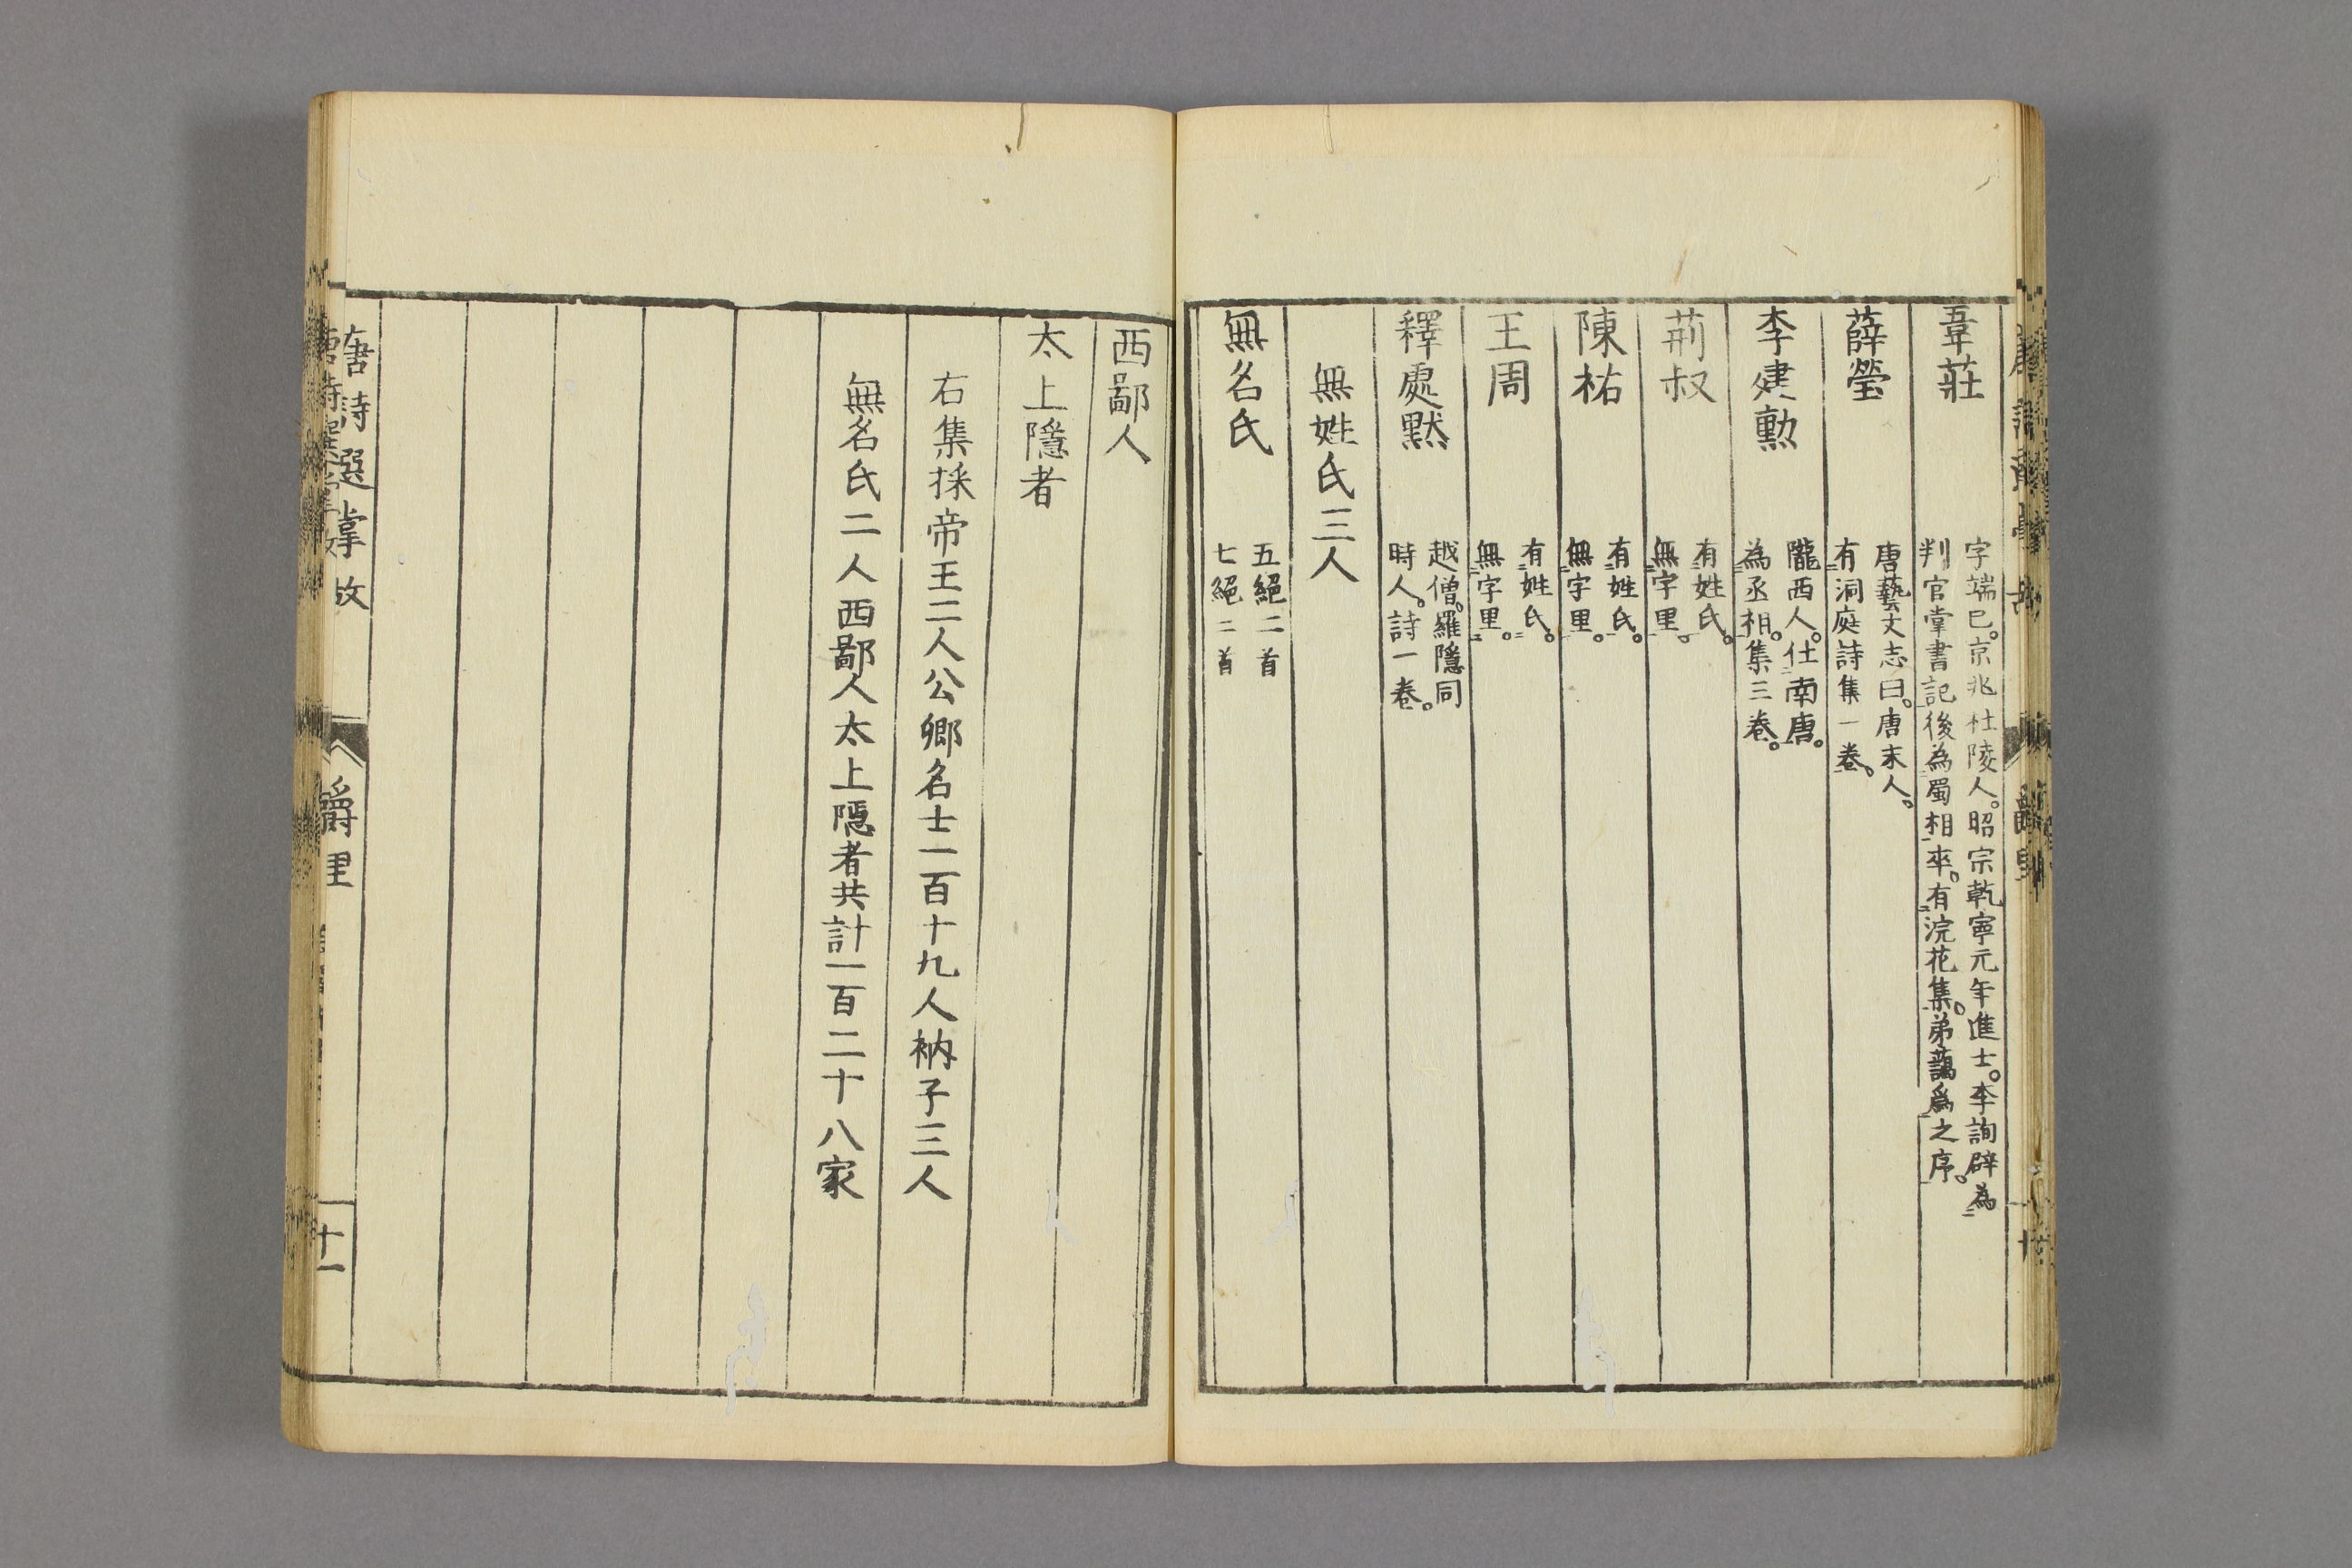 韋莊
字端巳。京兆杜陵人。昭宗乾寧元年進士。李詢辟為
判官掌書記後為蜀相卒。有浣花集。弟藹爲之序。
薛瑩
唐藝文志曰。唐末人。
有洞庭詩集一卷。
李建勲
隴西人。仕南唐。
為丞相。集三卷。
荊叔
有姓氏。
無字里。
陳祐
有姓氏。
無字里。
王周
有姓氏。
無字里。
釋處黙
越僧。羅隱同
時人。詩一卷。
無姓氏三人
無名氏
五絕二首
七絕二首
西鄙人
太上隱者
右集採帝王二人公卿名士一百十九人衲子三人
無名氏二人西鄙人太上隱者共計一百二十八家
唐詩選掌故
爵里
十一